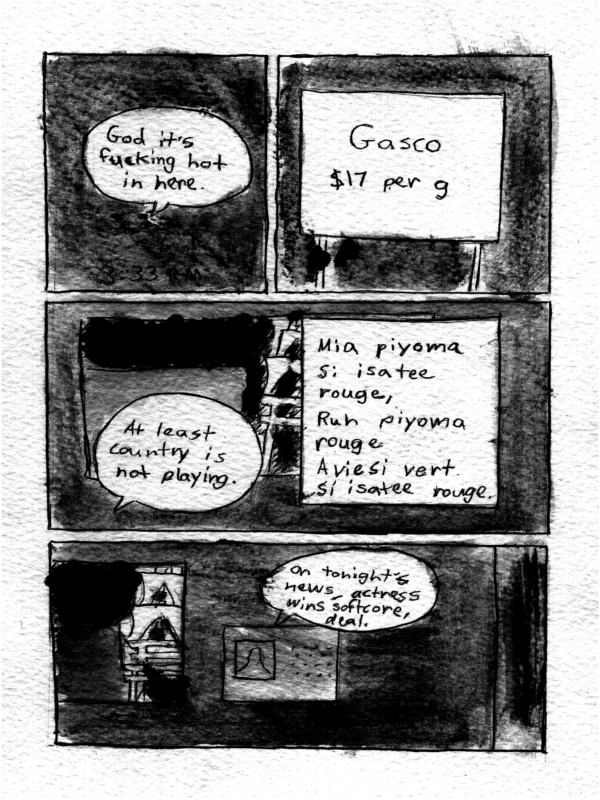 God it's
fucking hot
in here.
8:33 PM
Gasco
$17 per g
At least
country is
not playing.
Mia piyoma
Si isatee
rouge,
Ruh piyoma
rouge
Aviesi vert.
Si isatee rouge.
On tonight's
news, actress
wins softcore,
deal.